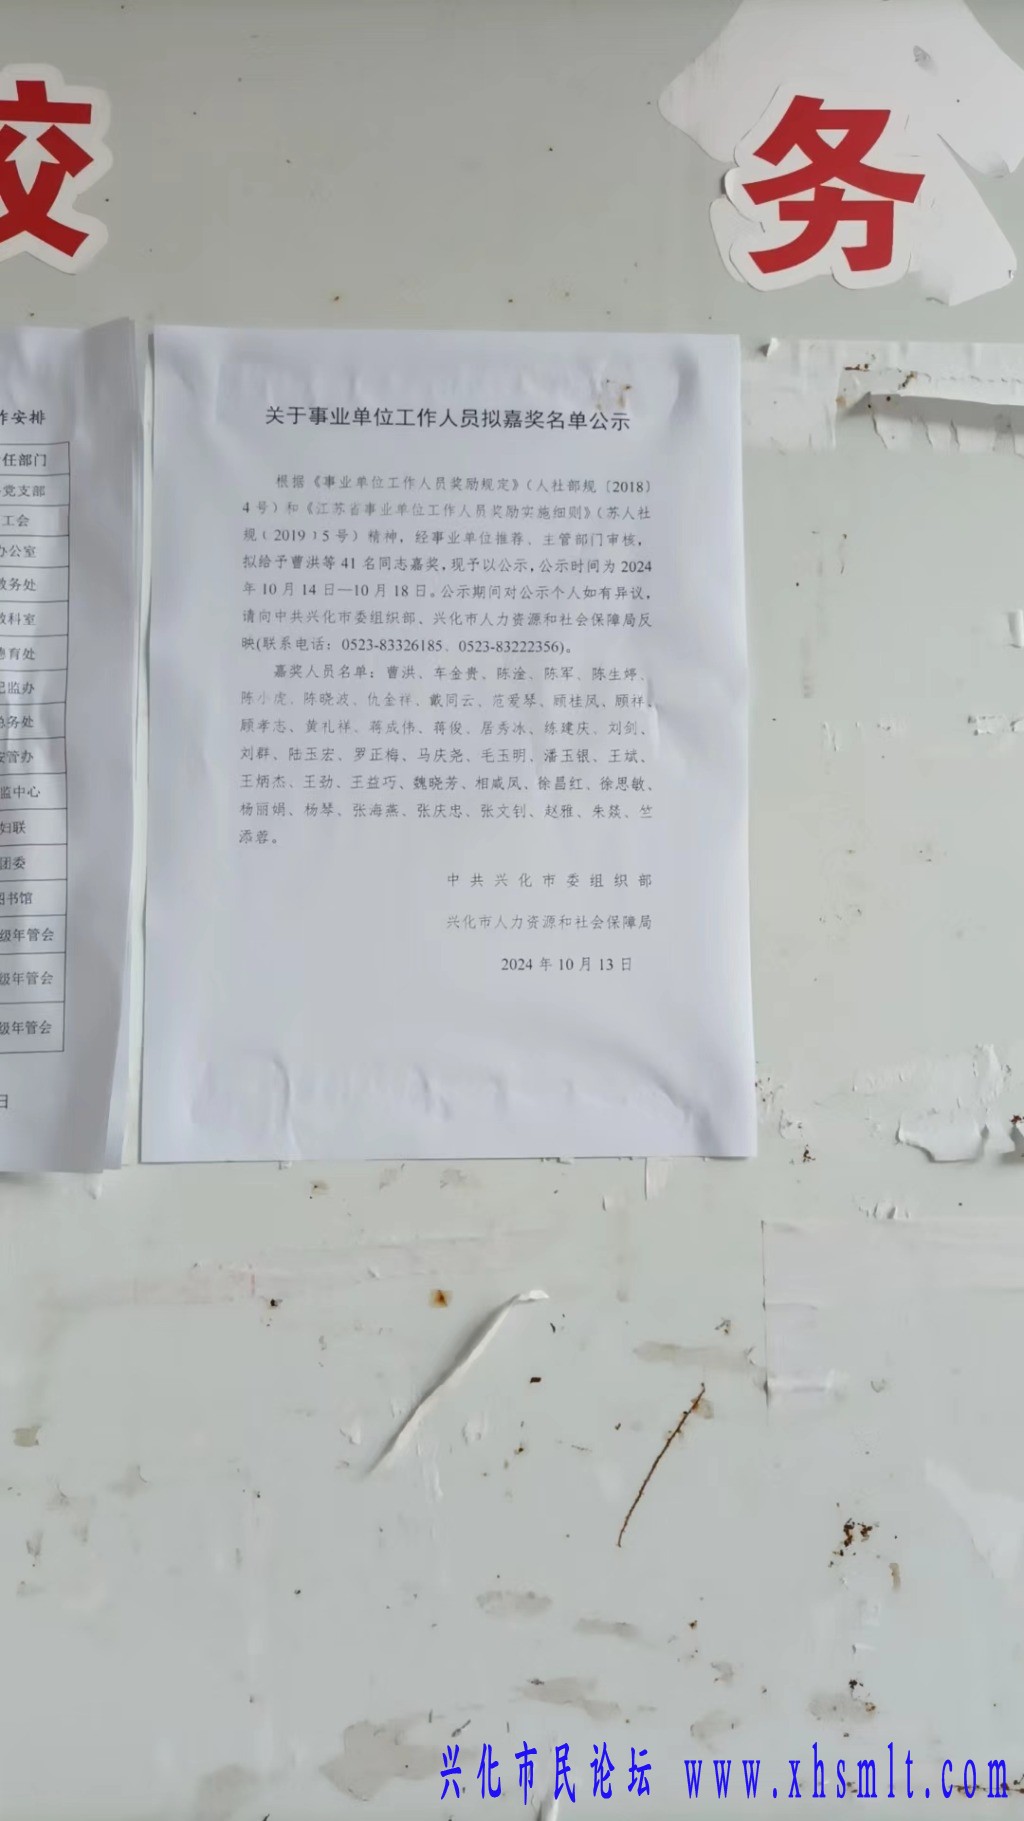 校
务
作安排
任部门
党支部
工会
办公室
教务处
教科室
德育处
纪监办
总务处
安管办
监中心
妇联
团委
图书馆
级年管会
级年管会
级年管会
日
关于事业单位工作人员拟嘉奖名单公示
根据《事业单位工作人员奖励规定》（人社部规〔2018〕
4号）和《江苏省事业单位工作人员奖励实施细则》（苏人社
规〔2019〕5号）精神，经事业单位推荐、主管部门审核，
拟给予曹洪等41名同志嘉奖，现予以公示，公示时间为2024
年10月14日—10月18日。公示期间对公示个人如有异议，
请向中共兴化市委组织部、兴化市人力资源和社会保障局反
映(联系电话：0523-83326185、0523-83222356)。
嘉奖人员名单：曹洪、车金贵、陈淦、陈军、陈生婷、
陈小虎、陈晓波、仇金祥、戴同云、范爱琴、顾桂凤、顾祥、
顾孝志、黄礼祥、蒋成伟、蒋俊、居秀冰、练建庆、刘剑、
刘群、陆玉宏、罗正梅、马庆尧、毛玉明、潘玉银、王斌、
王炳杰、王劲、王益巧、魏晓芳、相咸凤、徐昌红、徐思敏、
杨丽娟、杨琴、张海燕、张庆忠、张文钊、赵雅、朱燚、竺
添蓉。
中共兴化市委组织部
兴化市人力资源和社会保障局
2024年10月13日
兴化市民论坛 www.xhsmlt.com